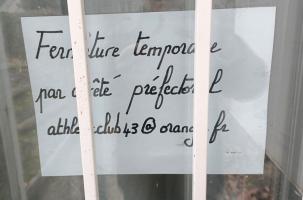 Fermeture temporaire
par arrêté préfectoral
athleticclub43@orange.fr